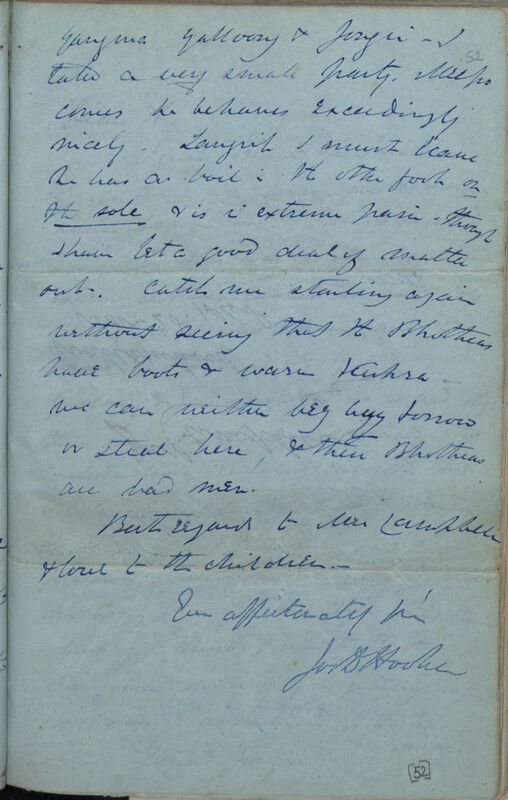 Yangma Yalloong & Jongri - I
take a very small party. Meepo
comes he behaves exceedingly
nicely. I must leave
he has a boil in the other foot on
the sole & is in extreme pain - though
I have let a good deal of matter
out. Catch me starting again
without seeing that the Bhoteas
have boots & warm
we can neither beg buy borrow
or steal here, & these Bhoteas
are bad men.
Best regards to Mrs Campbell
& love to the children.-
Ever affectionately yrs
Jos D Hooker
52
[52]